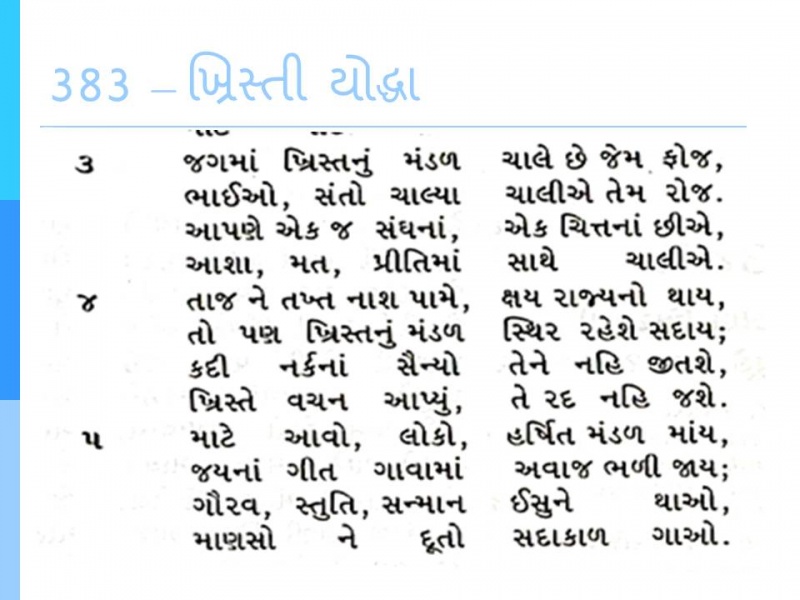 383 – ખ્રિસ્તી યોદ્ધા
૩ જગમાં ખ્રિસ્તનું મંડળ ચાલે છે જેમ ફોજ,
ભાઈઓ, સંતો ચાલ્યા ચાલીએ તેમ રોજ.
આપણે એક જ સંઘનાં, એક ચિત્તનાં છીએ,
આશા, મત, પ્રીતિમાં સાથે ચાલીએ.
૪ તાજ ને તખ્ત નાશ પામે, ક્ષય રાજ્યનો થાય,
તો પણ ખ્રિસ્તનું મંડળ સ્થિર રહેશે સદાય;
કદી નર્કનાં સૈન્યો તેને નહિ જીતશે,
ખ્રિસ્તે વચન આપ્યું, તે રદ નહિ જશે.
૫ માટે આવો, લોકો, હર્ષિત મંડળ માંય,
જયનાં ગીત ગાવામાં અવાજ ભળી જાય;
ગૌરવ, સ્તુતિ, સન્માન ઈસુને થાઓ,
માણસો ને દૂતો સદાકાળ ગાઓ.